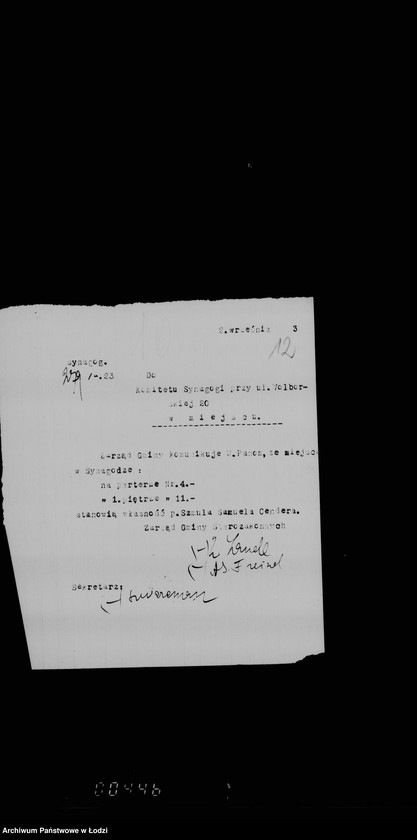 2.września 3
12
Synagog.
279 /-.23 Do
Komitetu Synagogi przy ul.Wolbor-
skiej 20
w m i e j s c u.
Zarząd Gminy komunikuje W.Panom, że miejsca
w Synagodze :
na parterze Nr.4.-
w 1.piętrze " 11.-
stanowią własność p.Szmula Samuela Cendera.
Zarząd Gminy Starozakonnych
(-)
(-) As. Freind
Sekretarz:
(-)
00446
Archiwum Państwowe w Łodzi